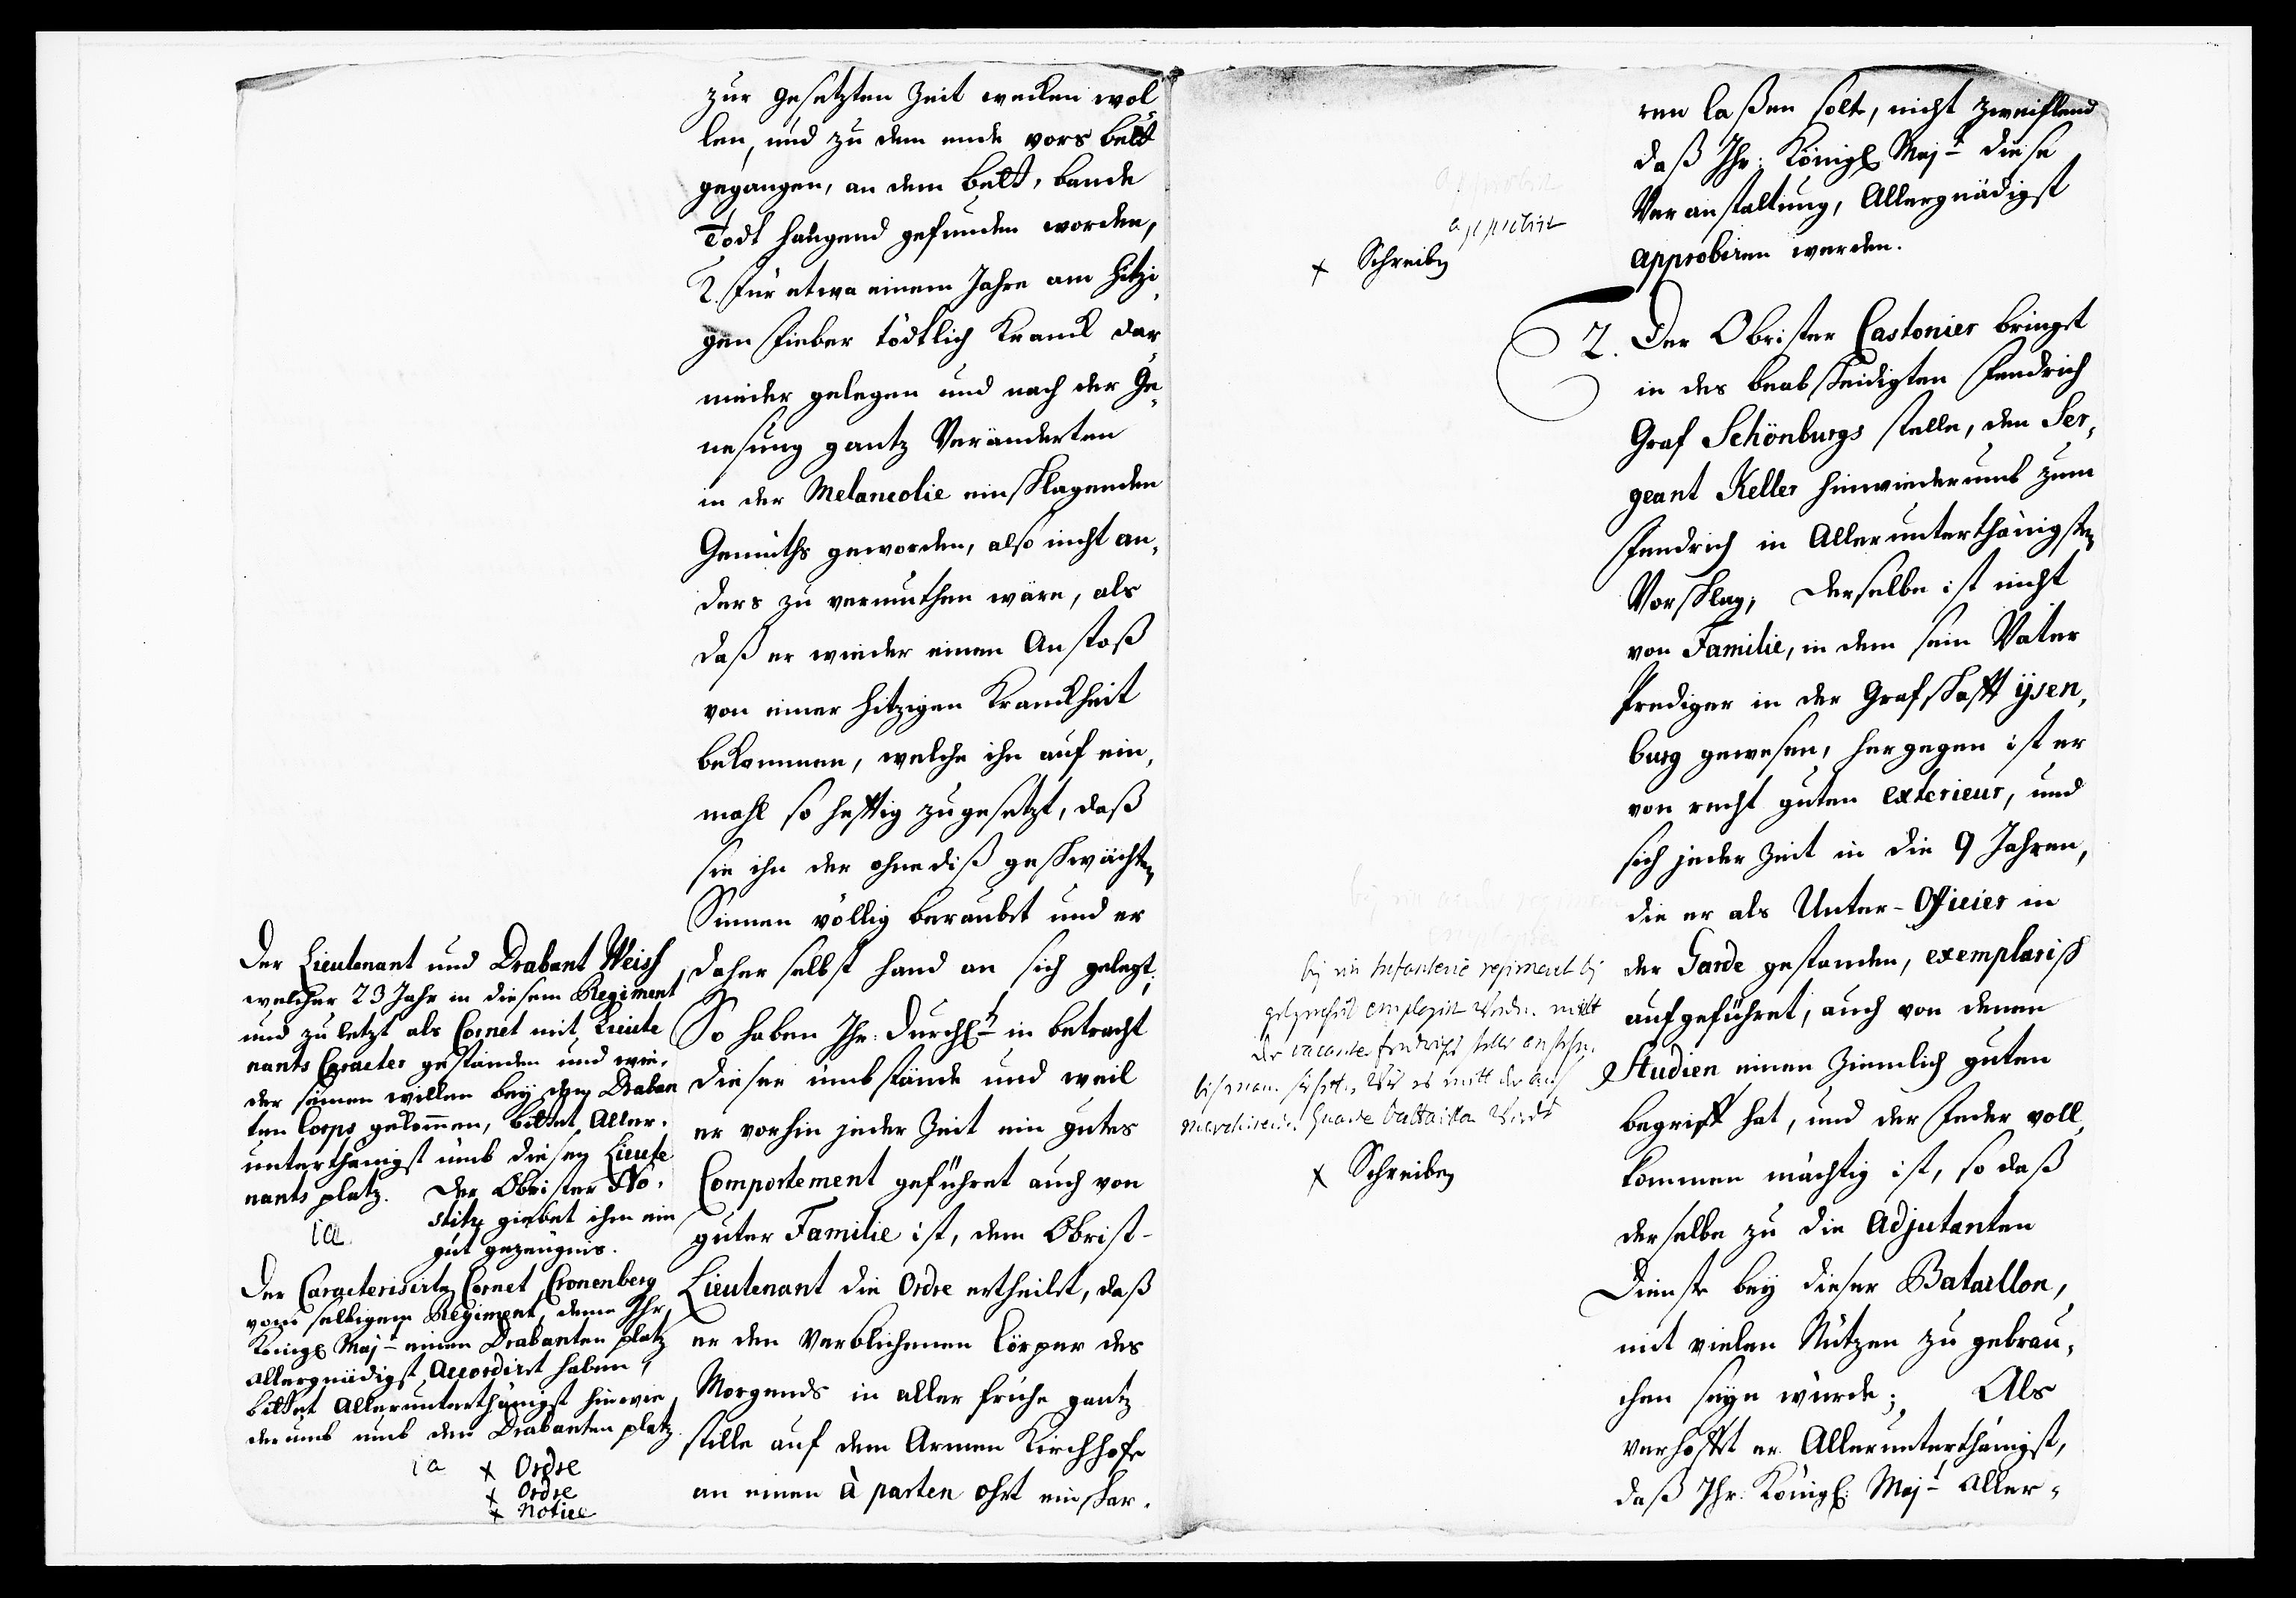 zur gesetzten Zeit wecken wol
len, und zu dem ende vors bett
gegangen, an dem bett, bande
Todt hangend gefunden worden,
2. für etwa einem Jahre am hitzi,
gen Fieber tödtlich Kranck dar
nieder gelegen und nach der Ge,
nesung gantz Veränderten
in der Melancolie einschlagenden
Gemüths geworden, also nicht an,
ders zu vermuthen wäre, als
daß er wieder einen Anstoß
von einer hitzigen Kranckheit
bekommen, welche ihn auf ein,
mahl so hefftig zugesetzt, daß
sie ihn der ohnediß geschwächten
Sinnen völlig beraubet und er
daher selbst hand an sich gelegt;
So haben Ihr: Durchl in betracht
dieser umbstände und weil
er vorhin jeder Zeit ein gutes
Comportement geführet auch von
guter Familie ist, dem Obrist-
Lieutenant die Ordre ertheilet, daß
er den Verblichenen Cörper des
Morgends in aller frühe gantz
stille auf dem Armen Kirchhofe
an einen à parten ohrt einschar,
Der Lieutenant und Drabant Weiss
welcher 23 Jahr in diesem Regiment
und zu letzt als Cornet mit Lieute
nants Caracter gestanden und wie,
der seinen willen bey dem Draban
ten Corps gekommen, bittet Aller,
unterthänigst umb diesen Lieute
nants platz. Der Obrister No,
stitz giebet ihm ein
ia
gut gezeugnis.
Der Caracterisirte Cornet Cronenberg
vom selbigem Regiment, deme Ihr
Königl Majt einen Drabanten platz
allergnädigst Accordiret haben,
bittet Allerunterthänigst hinwie
derumb umb den Drabanten platz.
ia x Ordre
x Ordre
x Notice
ren laßen solte, nicht zweiflend
daß Ihr: Königl Majt diese
Veranstaltung, Allergnädigst
approbiren werden.
approbirt
x Schreiben
2. Der Obrister Castonier bringet
in des beabscheidigten Fendrich
Graf Schönburgs stelle, den Ser,
geant Keller hinwiederumb zum
Fendrich in Allerunterthänigsten
Vorschlag; Derselbe ist nicht
von Familie, in dem sein Vater
Prediger in der Grafschafft ÿsen,
burg gewesen, hergegen ist er
von recht guten exterieur, und
sich jeder Zeit in die 9 Jahren,
die er als Unter-Officier in
der Garde gestanden, exemplarisch
aufgeführet, auch von denen
Studien einen Ziemlich guten
begriff hat, und der Feder voll,
kommen mächtig ist, so daß
derselbe zu die Adjutanten
Dienste bey dieser Bataillon,
mit vielen Nutzen zu gebrau,
chen seyn würde; Als
verhofft er Allerunterthänigst,
daß Ihr: Königl: Majt Aller,
bey ein Infanterie regiment bey
gelegenheit employirt werden. mitt
der vacante fendrichs stelle anstehen,
bis man siehet, wie es mitt der aus
marchirenden Guarde battaillon wirdt
x Schreiben